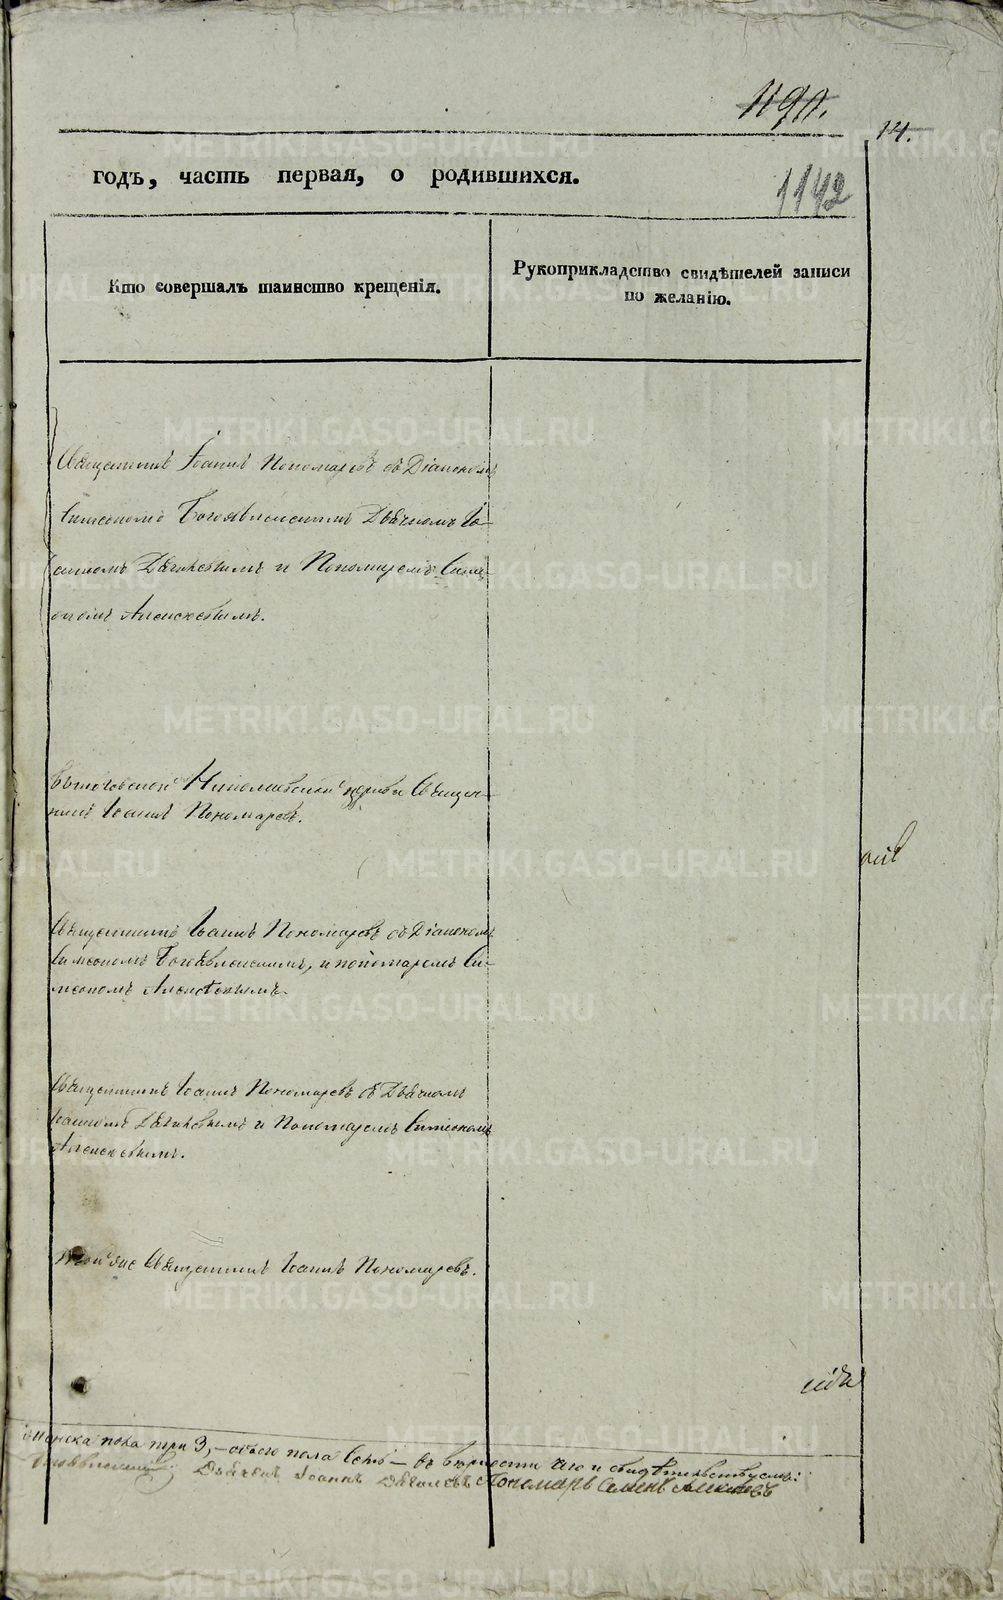 1190.
14.
годъ, часть первая, о родившихся.
1142
Кто совершалъ таинство крещенія.
Рукоприкладство свидѣтелей записи
по желанію.
Священникъ Іоаннъ Пономаревъ съ Діакономъ
Симеономъ Богоявленскимъ Дьячкомъ Іо-
анномъ Дягилевымъ и Пономаремъ Симе-
ономъ Алексѣевымъ.
Николаевской церкви Священ-
никъ Іоаннъ Пономаревъ.
Священникъ Іоаннъ Пономаревъ съ Діакономъ
Симеономъ Богоявленскимъ, и пономаремъ Си-
меономъ Алексѣевымъ.
Священникъ Іоаннъ Пономаревъ съ Дьячкомъ
Іоанномъ Дягилевымъ и Пономаремъ Симеономъ
Алексѣевымъ.
Той же Священникъ Іоаннъ Пономаревъ.
женска пола три 3, — обоего пола — въ вѣрности чего и свидѣтельствуемъ:
Богоявленскій Дьячекъ Іоаннъ Дягилевъ Пономарь Семенъ Алексѣевъ
METRIKI.GASO-URAL.RU